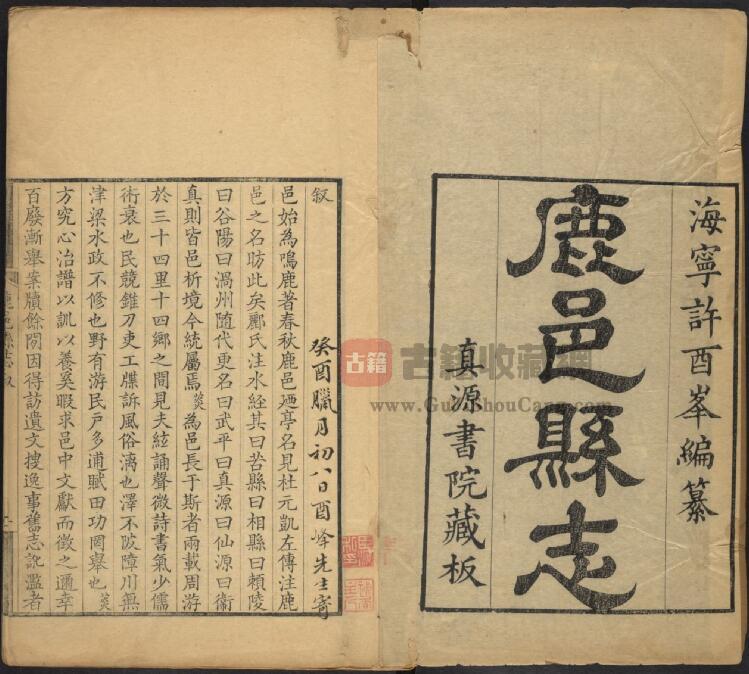 海寧許酉峯編纂
鹿邑縣志
真源書院藏板
癸酉臘月初八日酉峰先生寄
叙
邑始為鳴鹿著春秋鹿邑廼亭名見杜元凱左傳注鹿
邑之名昉此矣酈氏注水經其曰苦縣曰相縣曰賴陵
曰谷陽曰渦州隨代更名曰武平曰真源曰仙源曰衞
真則皆邑析境今統屬焉菼為邑長于斯者兩載周游
於三十四里十四鄉之間見夫絃誦聲微詩書氣少儒
術衰也民競錐刀吏工牒訴風俗漓也澤不陂障川無
津梁水政不修也野有游民戶多逋賦田功罔舉也菼
方究心治譜以訓以養奚暇求邑中文獻而徵之邇幸
百廢漸舉案牘餘閒因得訪遺文搜逸事舊志訛濫者
鹿邑縣志 叙
古籍
古籍收藏網
www.GuJiShouCang.com